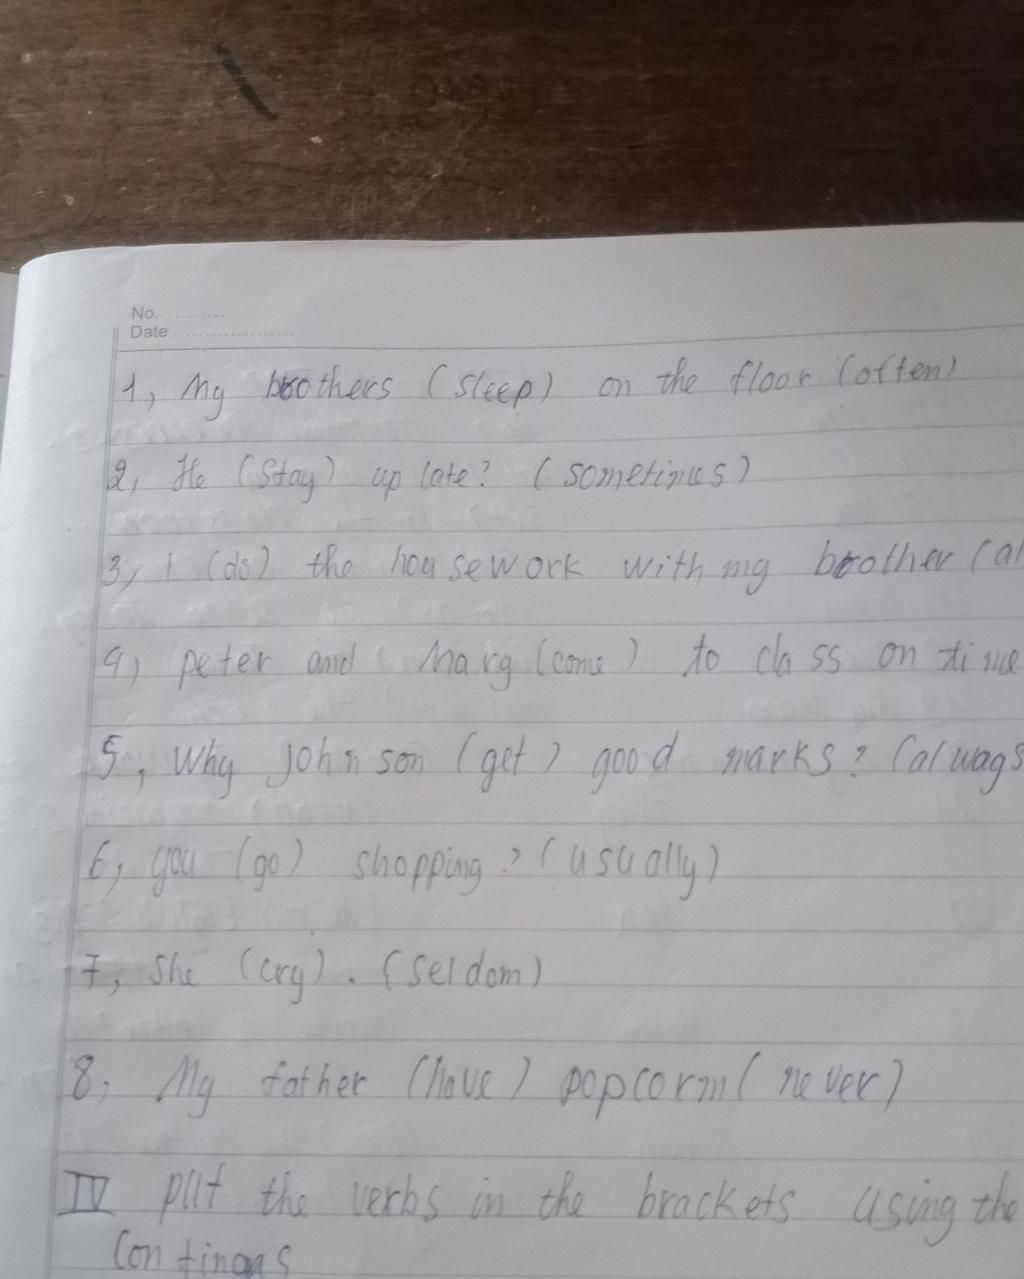 No. ..........
Date ....................
1, My brothers (sleep) on the floor (often)
2, He (Stay) up late? (sometimes)
3, I (do) the housework with my brother (al
4, peter and Mary (come) to class on time
5, Why Johnson (get) good marks? (always
6, you (go) shopping? (usually)
7, She (cry). (seldom)
8, My father (have) popcorm (never)
IV put the verbs in the brackets using the
Continous